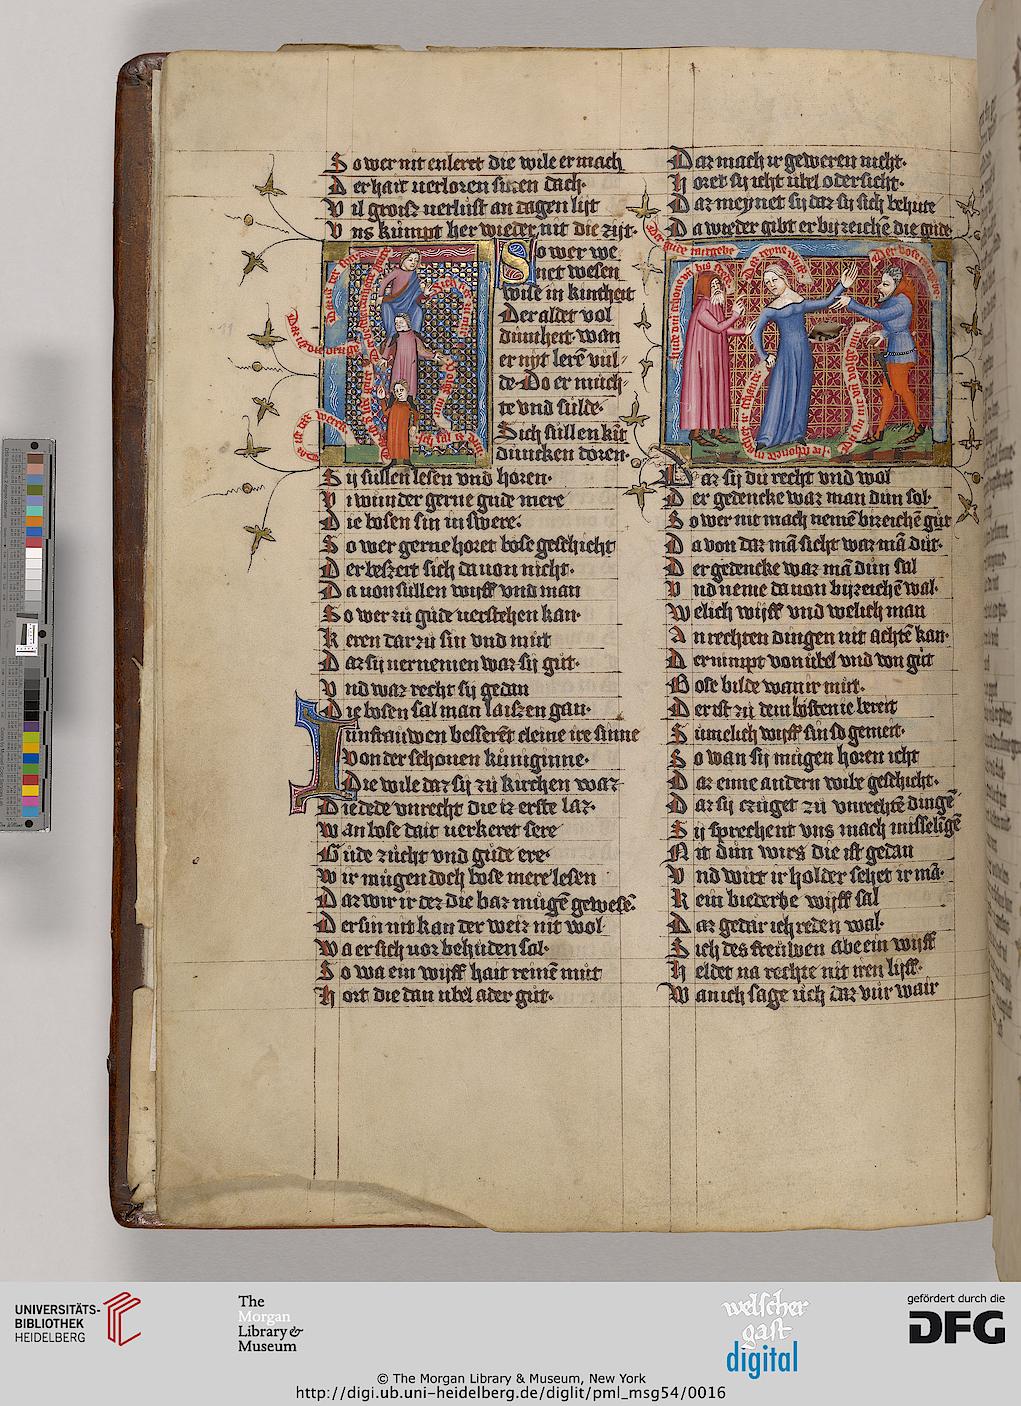 So wer nit enleret die wile er mach
Der hait verloren sinen dach·
Vil groisz verlust an dagen lijt
Vns kumpt her wieder nit die zijt·
So wer we
net wesen
wise in kintheit
Der aldet vol
dumheit· wan
er nijt lerē wil/
de· Da er much/
te vnd sulde·
Sich sullen kīt
duncken doren·
Sij sullen lesen vnd horen·
Vi wunder gerne gude mere
Die bosen sin in swere·
So wer gerne horet bose geschicht
Der beszert sich da von nicht·
Da von sullen wijff vnd man
So wer zu gude verstehen kan·
Keren dar zu sin vnd mut
Daz sij vernemen waz sij gut·
Vnd waz recht sij gedan
Die bosen sal man laiszen gan·
Junfrauwen besserēt cleine ire sinne
Von der schonen kuniginne·
Die wile daz sij zu kirchen waz
Die dede vnrecht die iz erste laz·
Wan bose dait verkeret sere
Gude zucht vnd gude ere·
Wir mugen doch bose mere lesen
Daz wir ir dez die baz mugē gewesē·
Der sin nit kan der weiz nit wol
Wa er sich vor behuden sal·
So wa ein wijff hait reinē mut
Hort die dan vbel ader gut·
Daz mach ir geweren nicht·
Horet sij icht vbel oder sicht·
Daz meynet sij daz sij sich behute
Da wieder gibt er bizeichē die gude
Daz sij du recht vnd wol
Der gedencke waz man dun sol·
So wer nit mach nemē bizeichē gut
Da von daz mā sicht waz mā dut·
Der gedencke waz mā dun sal
Vnd neme da von bijzeichē wal·
Welich wijff vnd welich man
An rechten dingen nit achtē kan·
Der nimpt von vbel vnd von gut
Bose bilde wan ir mut·
Der ist zu dem bosten ie bereit
Sumelich wijff sin so gemeit·
So wan sij mugen horen icht
Daz eime andern wibe geschicht·
Daz sij czuget zu vnrechtē dingē
Sij sprechent vns mach misselīgē
Nit dun wirs die ist gedan
Vnd wirt ir holder sehet ir mā·
Kein biederbe wijff sal
Daz gedar ich reden wal·
Sich des freuwen abe ein wijff
Heldet na rechte nit iren lijff·
Wan ich sage uch daz vur wair
UNIVERSITÄTS-
BIBLIOTHEK
HEIDELBERG
The
Morgan
Library &
Museum
welscher
gast
digital
gefördert durch die
DFG
© The Morgan Library & Museum, New York
http://digi.ub.uni-heidelberg.de/diglit/pml_msg54/0016